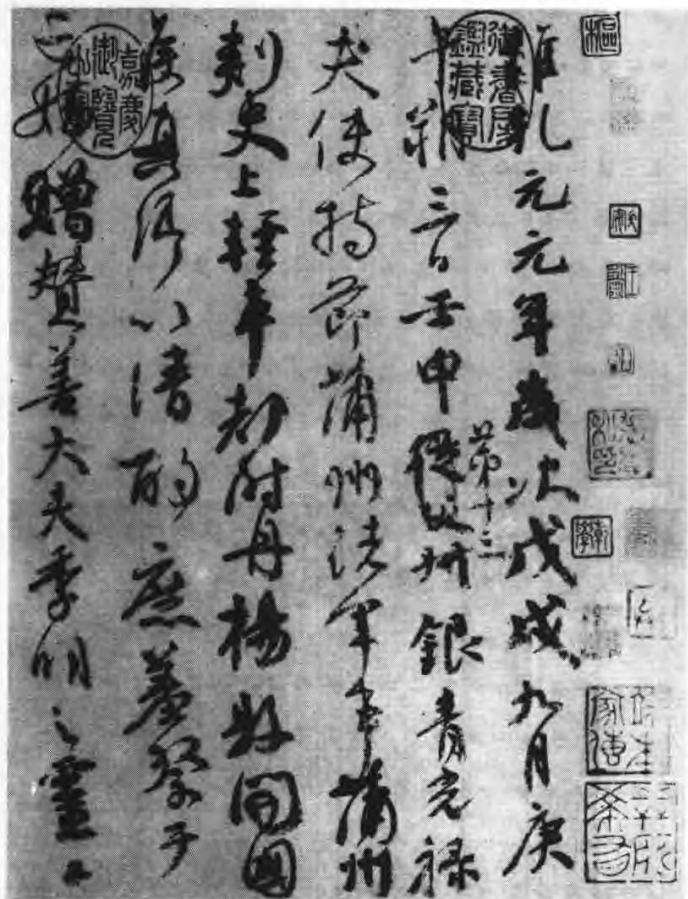 維乾元元年歲次戊戌九月庚
午朔三日壬申第十三從父叔銀青光祿
夫使持節蒲州諸軍事蒲州
刺史上輕車都尉丹楊縣開國
侯真卿以清酌庶羞祭于
亡姪贈贊善大夫季明之靈曰
樞
御書房鑑藏寶
嘉慶御覽之寶